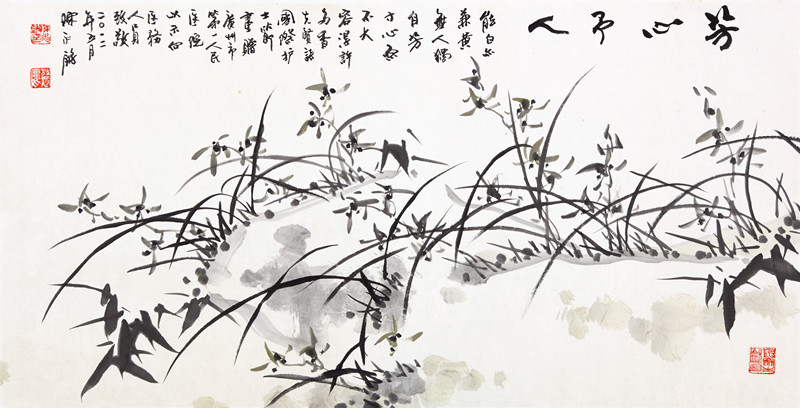 芳心予人
能白亦
兼黄
無人獨
自芳
寸心原
不大
容得許
多香
先賢詩
國際护
士節
書贈
廣州市
第一人民
医院
以示向
医務
人員
致敬
二〇一二
年五月
陳永鏘